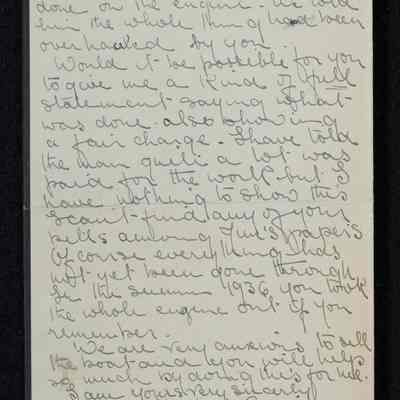 done on the engine. We told
him the whole thing had been
overhauled by you.
Would it be possible for you
to give me a kind of full
statement saying what
was done. also showing
a fair charge. I have told
the man quite a lot was
paid for the work but I
have nothing to show this
I can't find any of your
bills among Jim's papers
Of course everything has
not yet been done through
In the summer 1936 you took
the whole engine out if you
remember.
We are very anxious to sell
the boat and you will help
so much by doing this for me.
I am yours very sincerely